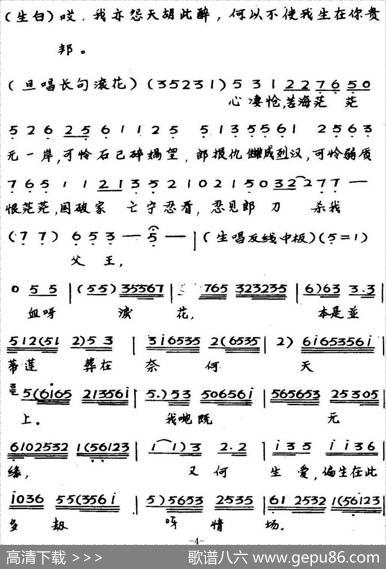 (生白)哎．我亦怨天胡此醉，何以不使我生在你贵
邦。
(旦唱长句滚花)(35231) 5 3 1 2 2 7 6 5 0
心凄怆，苦海茫 茫
5 2 6 2 5 6 1 1 2 5 5 1 3 5 5 6 1 2 5 6 3
元一岸，可怜石已碎 望，郎报仇 成烈汉，可怜弱质
7 6 5 1 1 2 1 3 5 2 1 0 2 1 5 0 3 2 2 7 7 —
恨茫茫，国破家 亡宁忍看，忍见郎 刀 杀我
(7 7) 6 5 3 — 5 — | (生唱反线中板)(5=1)
父 王，
0 5 5 | (5 5) 3 5 5 6 7 | 7 6 5 3 2 3 2 3 5 | 6) 6 3 3·3 |
姐呀 浪 花， 本是並
5 1 2 (5 1 2) 5 3 | 3 1 6 5 3 5 2 (6 5 3 5 | 2) 6 1 6 5 3 5 6 1 |
蒂莲 葬在 奈何 天
5 (6 1 6 5 2 1 3 5 6 1 | 5·) 5 3 5 0 6 5 6 1 | 5 6 5 6 5 3 2 5 3 0 5 |
上。 我哋既 元
6 1 0 2 5 3 2 1 (5 6 1 2 3 | 1 1) 3 2·2 | i 3 5 i i 3 6 |
缘， 又何 生爱，偏生在此
i 0 3 6 5 5 (3 5 6 i | 5) 5 6 5 3 2 5 3 5 | 6 1 2 5 3 2 1 (5 6 1 2 3 |
呀 情 场。
-4-
高清下载 >>>
歌谱八六 www.gepu86.com